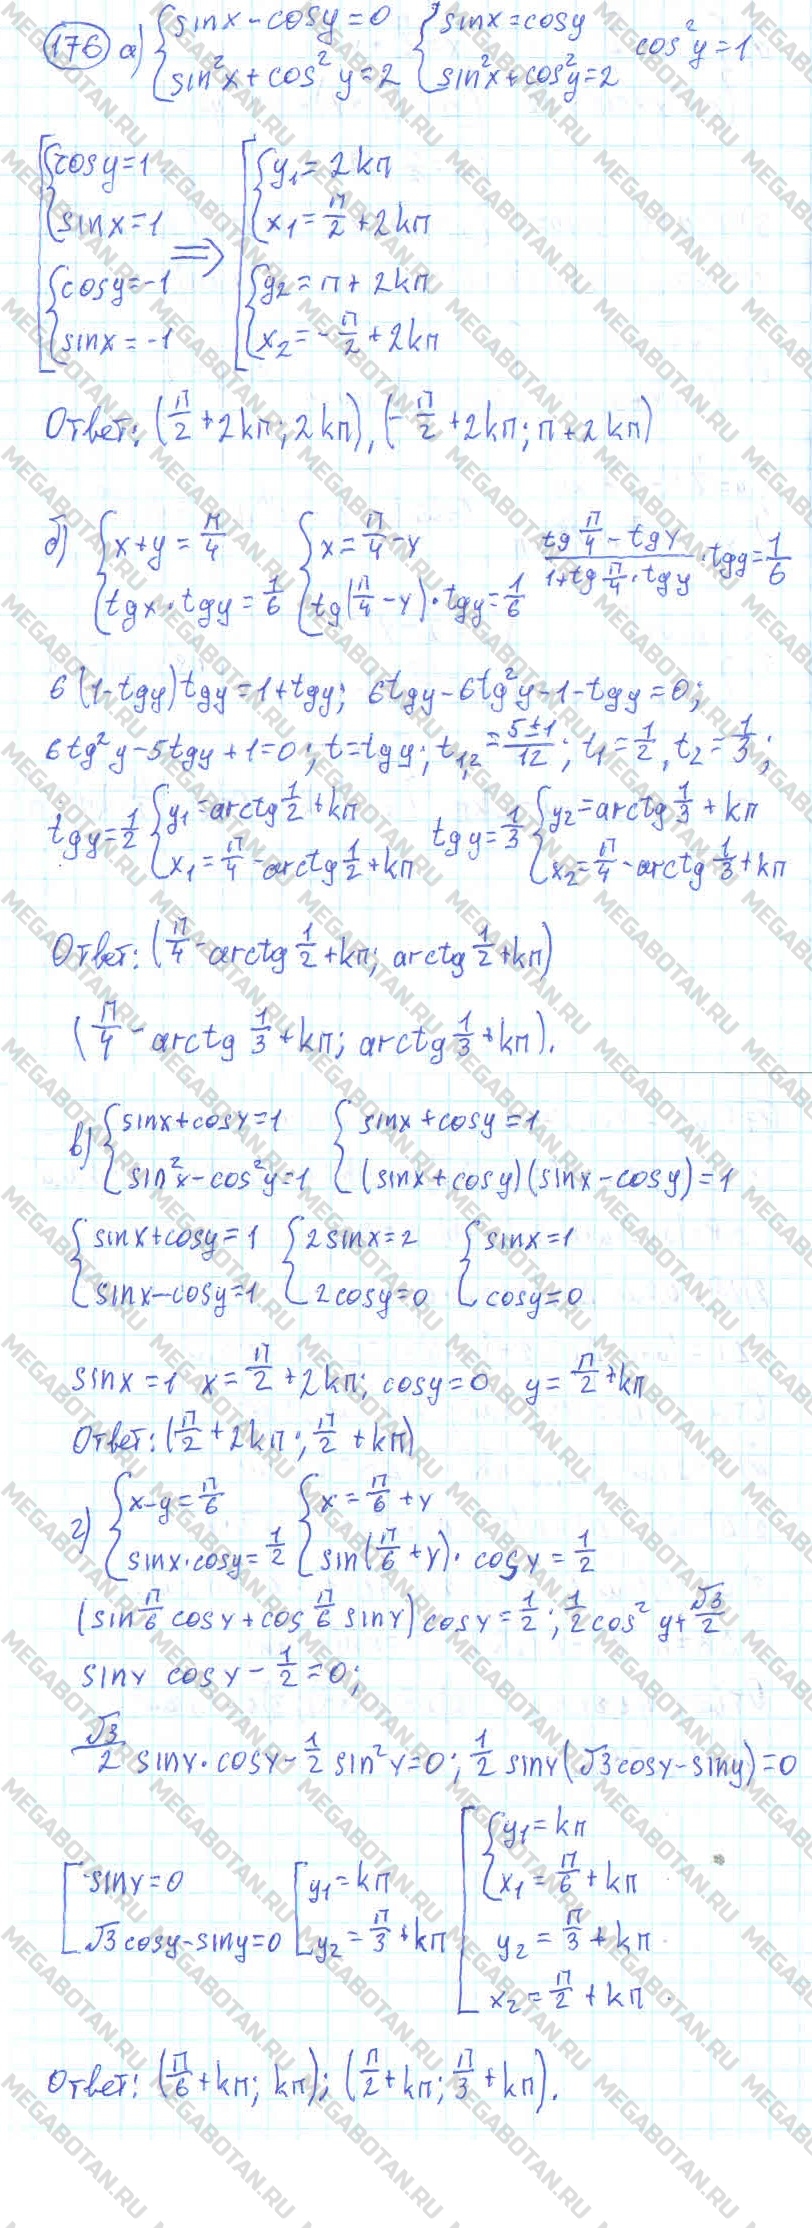 176 а) { sinx - cosy = 0 { sinx = cosy cos²y = 1
sin²x + cos²y = 2 sin²x + cos²y = 2
[ { cosy = 1 [ { y₁ = 2kπ
sinx = 1 ⇒ x₁ = π/2 + 2kπ
{ cosy = -1 { y₂ = π + 2kπ
sinx = -1 x₂ = -π/2 + 2kπ
Ответ: (π/2 + 2kπ; 2kπ), (-π/2 + 2kπ; π + 2kπ)
б) { x + y = π/4 { x = π/4 - y (tg π/4 - tgy)/(1 + tg π/4 · tgy) · tgy = 1/6
tgx · tgy = 1/6 tg(π/4 - y) · tgy = 1/6
6(1 - tgy)tgy = 1 + tgy; 6tgy - 6tg²y - 1 - tgy = 0;
6tg²y - 5tgy + 1 = 0; t = tgy; t₁,₂ = (5±1)/12; t₁ = 1/2, t₂ = 1/3;
tgy = 1/2 { y₁ = arctg 1/2 + kπ tgy = 1/3 { y₂ = arctg 1/3 + kπ
x₁ = π/4 - arctg 1/2 + kπ x₂ = π/4 - arctg 1/3 + kπ
Ответ: (π/4 - arctg 1/2 + kπ; arctg 1/2 + kπ)
(π/4 - arctg 1/3 + kπ; arctg 1/3 + kπ).
в) { sinx + cosy = 1 { sinx + cosy = 1
sin²x - cos²y = 1 (sinx + cosy)(sinx - cosy) = 1
{ sinx + cosy = 1 { 2sinx = 2 { sinx = 1
sinx - cosy = 1 2cosy = 0 cosy = 0
sinx = 1 x = π/2 + 2kπ; cosy = 0 y = π/2 + kπ
Ответ: (π/2 + 2kπ; π/2 + kπ)
г) { x - y = π/6 { x = π/6 + y
sinx · cosy = 1/2 sin(π/6 + y) · cosy = 1/2
(sin π/6 cosy + cos π/6 siny) cosy = 1/2; 1/2 cos²y + √3/2
siny cosy - 1/2 = 0;
√3/2 siny · cosy - 1/2 sin²y = 0; 1/2 siny(√3cosy - siny) = 0
[ siny = 0 [ y₁ = kπ [ { y₁ = kπ
√3cosy - siny = 0 y₂ = π/3 + kπ x₁ = π/6 + kπ
y₂ = π/3 + kπ
x₂ = π/2 + kπ
Ответ: (π/6 + kπ; kπ); (π/2 + kπ; π/3 + kπ).
MEGABOTAN.RU